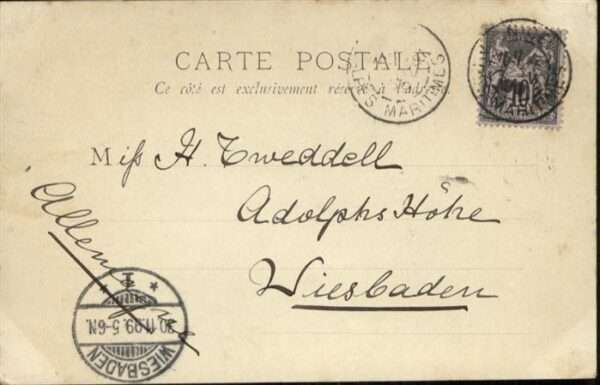 CARTE POSTALE
Ce côté est exclusivement réservé à l'adresse
ALPES MARITIMES
10
MARITIMES
Miſs H. Tweddell
Adolphs Höhe
Wiesbaden
WIESBADEN
1
30.11.99.5-6N.